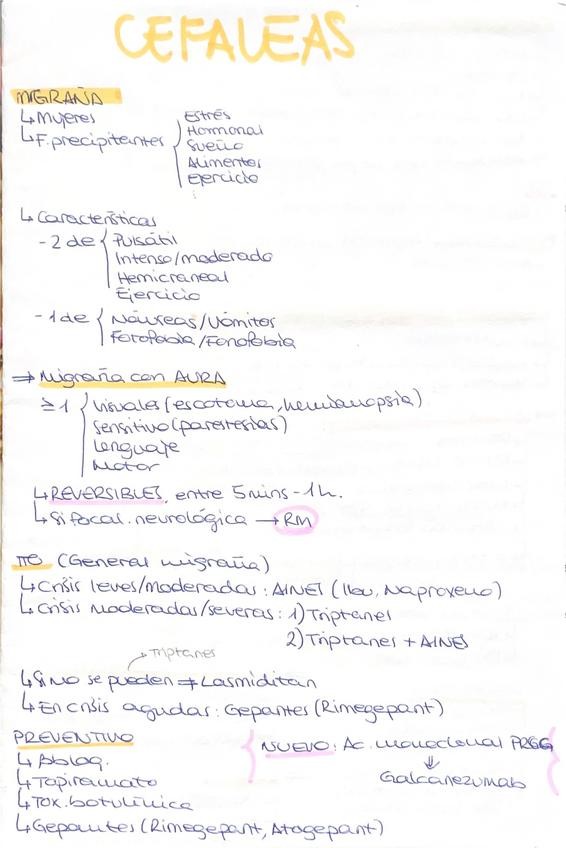 CEFALEAS
MIGRAÑA
↳ Mujeres
↳ F. precipitantes
Estrés
Hormonal
Sueño
Alimentos
Ejercicio
⋮
↳ Características
- 2 de
Pulsátil
Intenso/moderado
Hemicraneal
Ejercicio
- 1 de
Náuseas/Vómitos
Fotofobia/Fonofobia
⇒ Migraña con AURA
≥1
Visuales (escotoma, hemianopsia)
Sensitivo (parestesias)
Lenguaje
Motor
↳ REVERSIBLES, entre 5mins - 1h.
↳ Si focal. neurológica → RM
TTO (General migraña)
↳ Crisis leves/moderadas: AINES (Ibu, Naproxeno)
↳ Crisis moderadas/severas: 1) Triptanes
2) Triptanes + AINES
Triptanes
↳ Si no se pueden ⇒ Lasmiditan
↳ En crisis agudas: Gepantes (Rimegepant)
PREVENTIVO
↳ Bbloq.
↳ Topiramato
↳ Tox. botulínica
↳ Gepantes (Rimegepant, Atogepant)
NUEVO: Ac. monoclonal PRGC
⇓
Galcanezumab